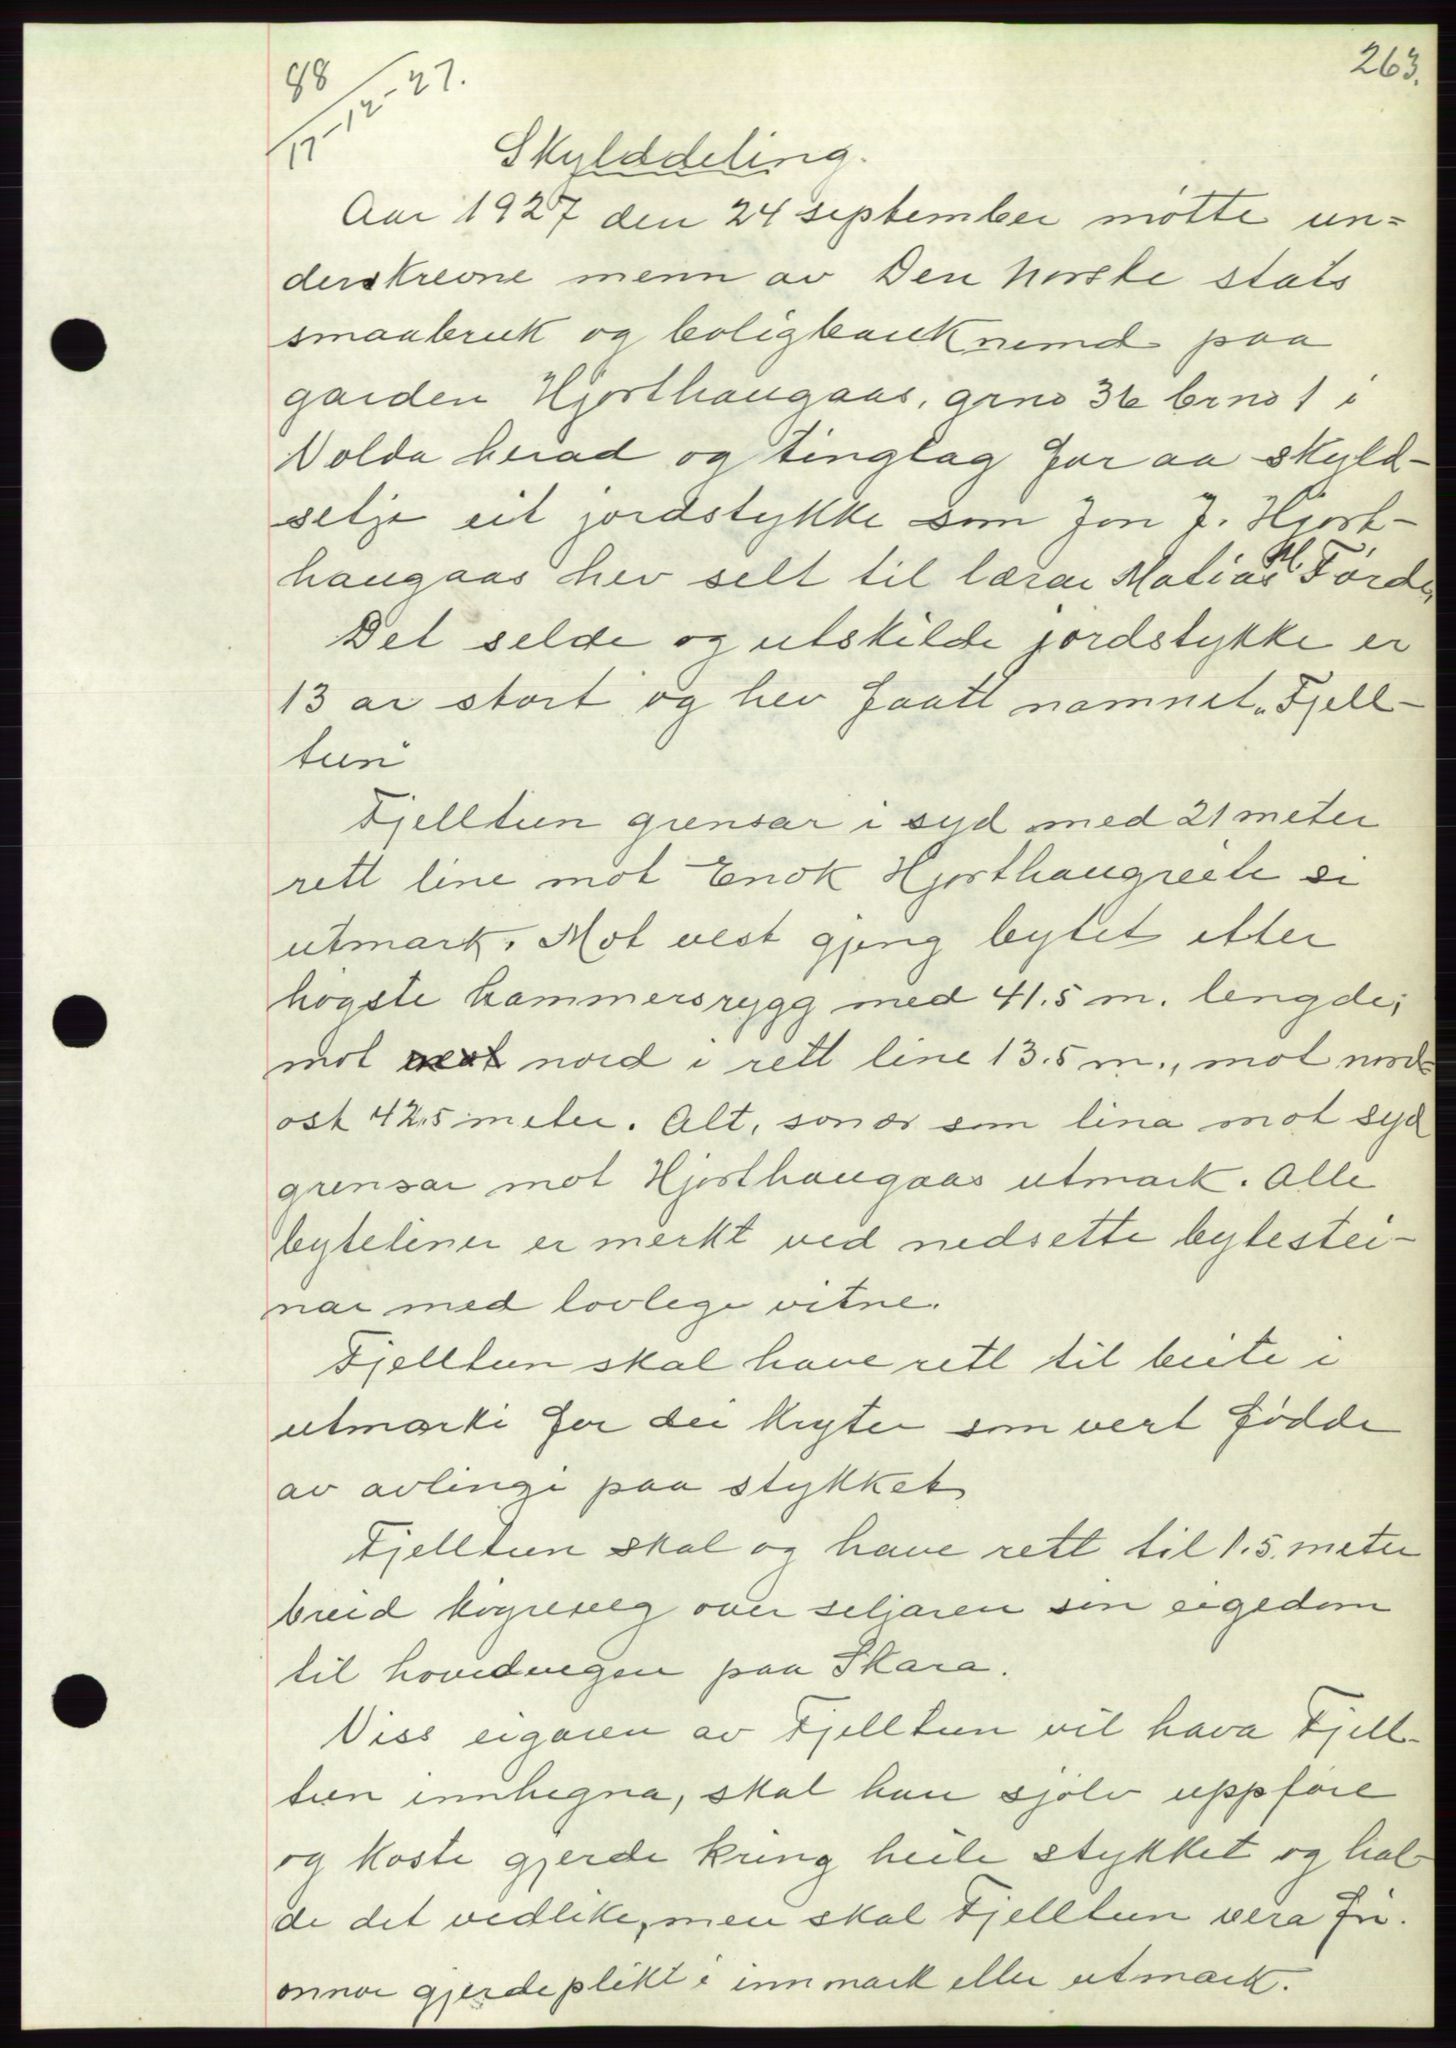 263.
88
17-12-27.
Skylddeling.
Aar 1927 den 24 september møtte un=
derskrevne menn av Den norske stats
smaabruk og boligbanknemd paa
garden Hjorthaugaas, grno 36 brno 1 i
Volda herad og tinglag for aa skyld-
setje eit jordstykke som Jon J. Hjort-
haugaas hev selt til lærar Matias M. Førde,
Det selde og utskilde jordstykke er
13 ar stort og hev faatt namnet „Fjell-
tun"
Fjelltun grensar i syd med 21 meter
rett line mot Enok Hjorthaugreite si
utmark. Mot vest gjeng bytet etter
høgste hammersrygg med 41.5 m. lengde;
mot nord i rett line 13.5 m., mot nord=
ost 42.5 meter. Alt, sonær som lina mot syd
grensar mot Hjorthaugaas utmark. Alle
byteliner er merkt ved nedsette bytestei-
nar med lovlege vitne.
Fjelltun skal have rett til beite i
utmarki for dei kryter som vert fødde
av avlingi paa stykket
Fjelltun skal og have rett til 1.5. meter
breid køyreveg over seljaren sin eigedom
til hovedvegen paa Skara.
Viss eigaren av Fjelltun vil hava Fjell-
tun innhegna, skal han sjølv uppføre
og koste gjerde kring heile stykket og hal-
de det vedlike, men skal Fjelltun vera fri.
annor gjerdeplikt i innmark eller utmark.